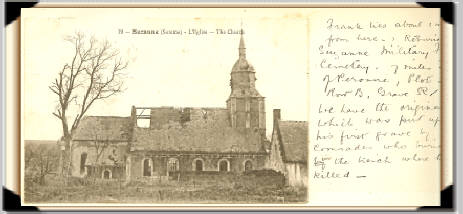 21 - Suzanne (Somme) - L'Eglise - The Church
Frank lies about 1
from here.
Suzanne Military
Cemetery. 7 miles
of Peronne, Plot
Row B, Grave
We have the original
which was put up
his first grave by
Comrades who buried
by the trench where h
killed —